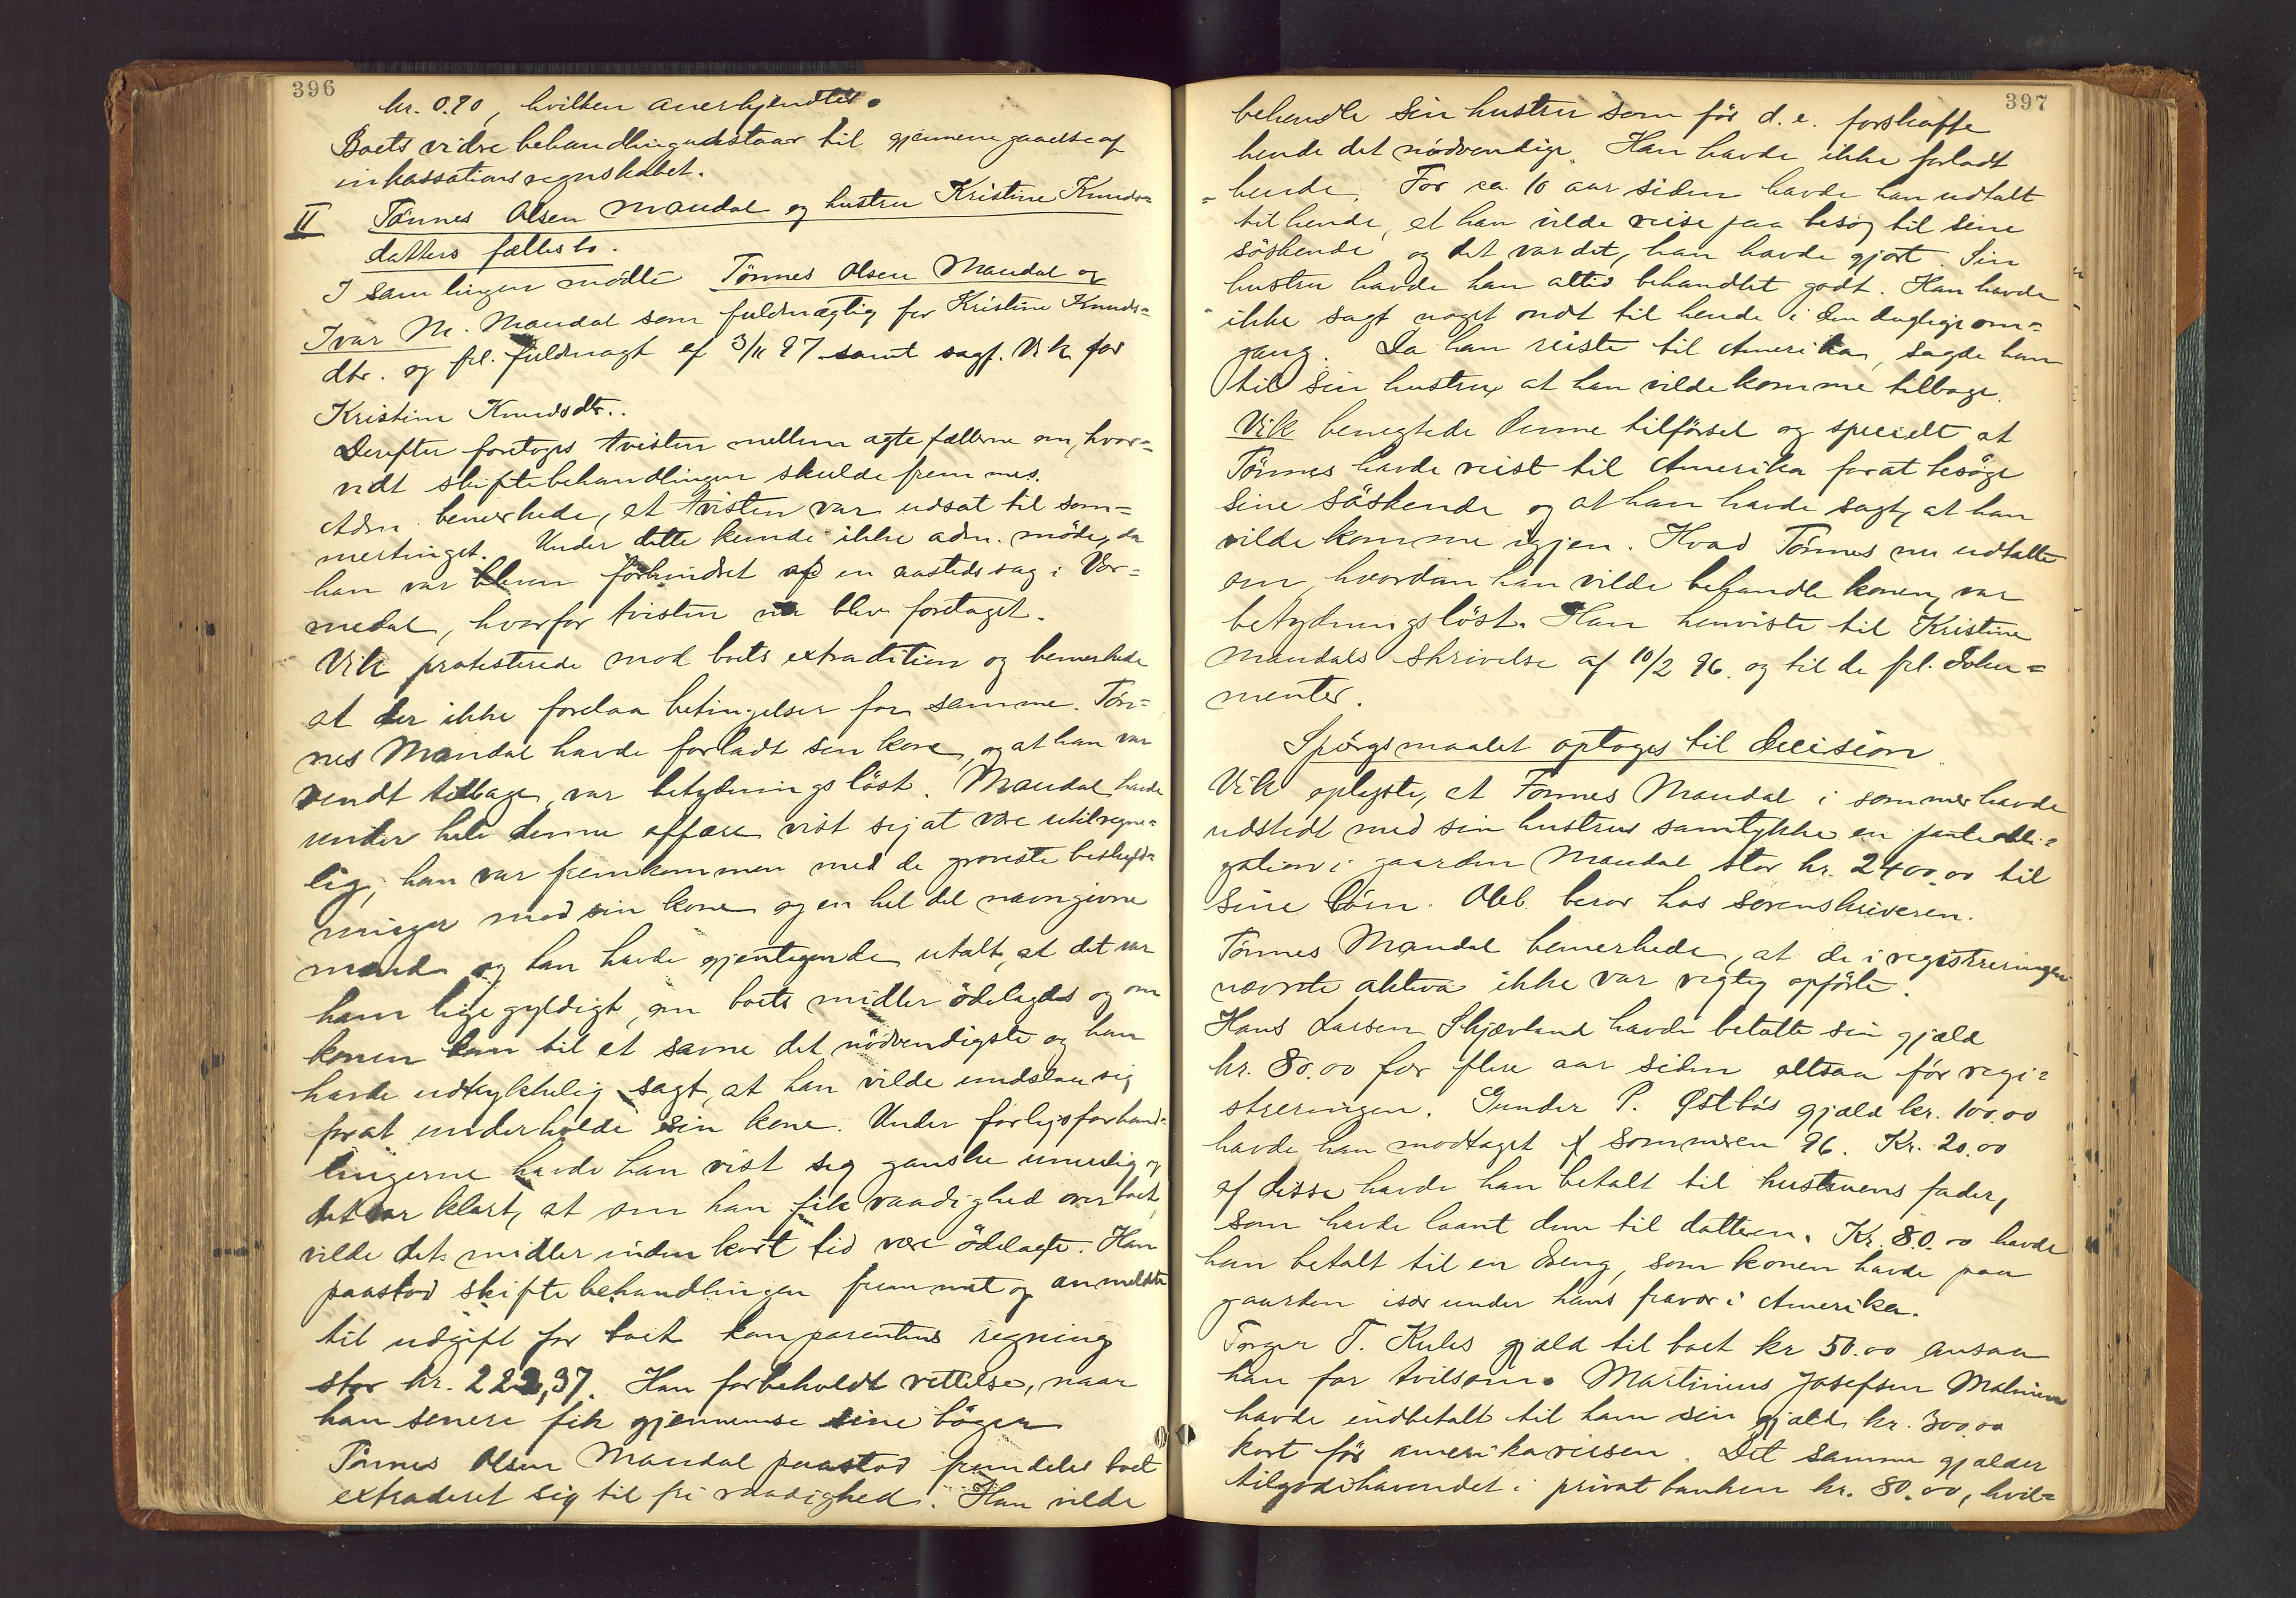 396
kr. 0.70, hvilken anerkjendtes.
Boets vidre behandling udstaar til gjennemgaaelse af
inkassationsregnskabet.
II Tønnes Olsen Mandal og hustru Kristine Knuds=
datters fællesbo.
I samlingen mødte Tønnes Olsen Mandal og
Ivar M. Mandal som fuldmægtig for Kristine Knuds=
dtr. og frl. fuldmagt af 3/11 97 samt sagf. Vik for
Kristine Knudsdtr..
Derefter foretoges tvisten mellem agtefællerne om, hvor=
vidt skiftebehandlingen skulde fremmes.
Adm. bemerkede, at tvisten var udsat til som=
mertinget. Under dette kunde ikke adm. møde, da
han var bleven forhindret af en aastedssag i Vor=
medal, hvorfor tvisten nu blev foretaget.
Vik protesterede mod boets extradition og bemerkede
at der ikke forelaa betingelser for samme. Tøn=
nes Mandal havde forladt sin kone, og at han var
vendt tilbage, var betydningsløst. Mandal havde
under hele denne affære vist sig at være utilregne=
lig, han var fremkommen med de groveste beskyld=
ninger mod sin kone og en hel del navngivne
mænd og han havde gjentagende utalt, at det var
ham ligegyldigt, om boets midler ødelagdes og om
konen kom til at savne det nødvendigste og han
havde udtrykkelig sagt, at han vilde undslaa sig
forat underholde sin kone. Under forligsforhand=
lingerne havde han vist sig ganske umulig og
det var klart, at om han fik raadighed over boet,
vilde dets midler inden kort tid være ødelagte. Han
paastod skiftebehandlingen fremmet og anmeldte
til udgift for boet komparentens regning
stor kr. 222,37. Han forbeholdt rettelse, naar
han senere fik gjennemse sine bøger
Tønnes Olsen Mandal paastod fremdeles boet
extraderet sig til fri raadighed. Han vilde
397
behandle sin hustru som før d. e. forskaffe
hende det nødvendige. Han havde ikke forladt
hende. For ca. 10 aar siden havde han udtalt
til hende, at han vilde reise paa besøg til sine
søskende og det var det, han havde gjort. Sin
hustru havde han altid behandlet godt. Han havde
ikke sagt noget ondt til hende i den daglige om=
gang. Da han reiste til Amerika, sagde han
til sin hustru, at han vilde komme tilbage.
Vik benegtede denne tilførsel og specielt at
Tønnes havde reist til Amerika forat besøge
sine søskende og at han havde sagt, at han
vilde komme igjen. Hvad Tønnes nu udtalte
om, hvordan han vilde behandle konen, var
betydningsløst. Han henviste til Kristine
Mandals skrivelse af 10/2 96. og til de frl. doku=
menter.
Spørgsmaalet optoges til decision
Vik oplyste, at Tønnes Mandal i sommer havde
udstedt med sin hustrus samtykke en panteobli=
gation i gaarden Mandal stor kr. 2400.00 til
sine børn. Obl. beror hos sorenskriveren.
Tønnes Mandal bemerkede, at de i registreringen
nævnte aktiva ikke var rigtig opførte.
Hans Larsen Skjævland havde betalte sin gjæld
kr. 80.00 for flere aar siden altsaa før regi=
streringen. Gunder P. Østbøs gjæld kr. 100.00
havde han modtaget sommeren 96. Kr. 20.00
af disse havde han betalt til hustruens fader,
som havde laant dem til datteren. Kr. 80.00 havde
han betalt til en dreng, som konen havde paa
gaarden især under hans fravær i Amerika.
Torger T. gjæld til boet kr 50.00 ansaa
han for tvilsom. Martinius Josefsen
havde indbetalt til ham sin gjæld kr. 300.00
kort før amerikareisen. Det samme gjælder
tilgodehavendet i privatbanken kr. 80.00, hvil=